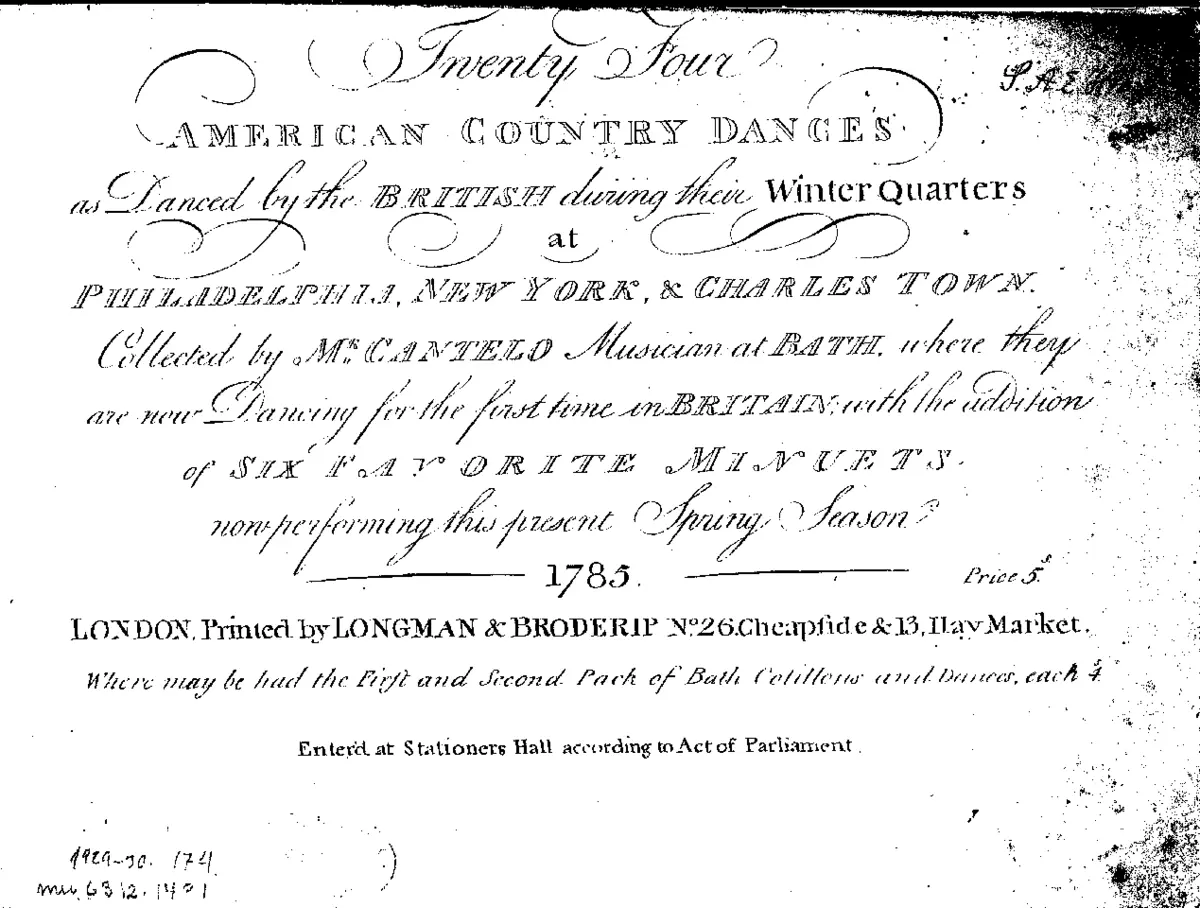 Twenty Four
AMERICAN COUNTRY DANCES
as Danced by the BRITISH during their Winter Quarters
at
PHILADELPHIA, NEW YORK, & CHARLES TOWN.
Collected by Mr. CANTELO Musician at BATH, where they
are now Dancing for the first time in BRITAIN, with the addition
of SIX FAVORITE MINUETS.
now performing this present Spring Season
1785.
Price 5s
LONDON, Printed by LONGMAN & BRODERIP No. 26, Cheapſide & 13, Hay Market.
Where may be had the Firſt and Second Pack of Bath Cotillons and Dances, each 4s
Enter'd at Stationers Hall according to Act of Parliament.